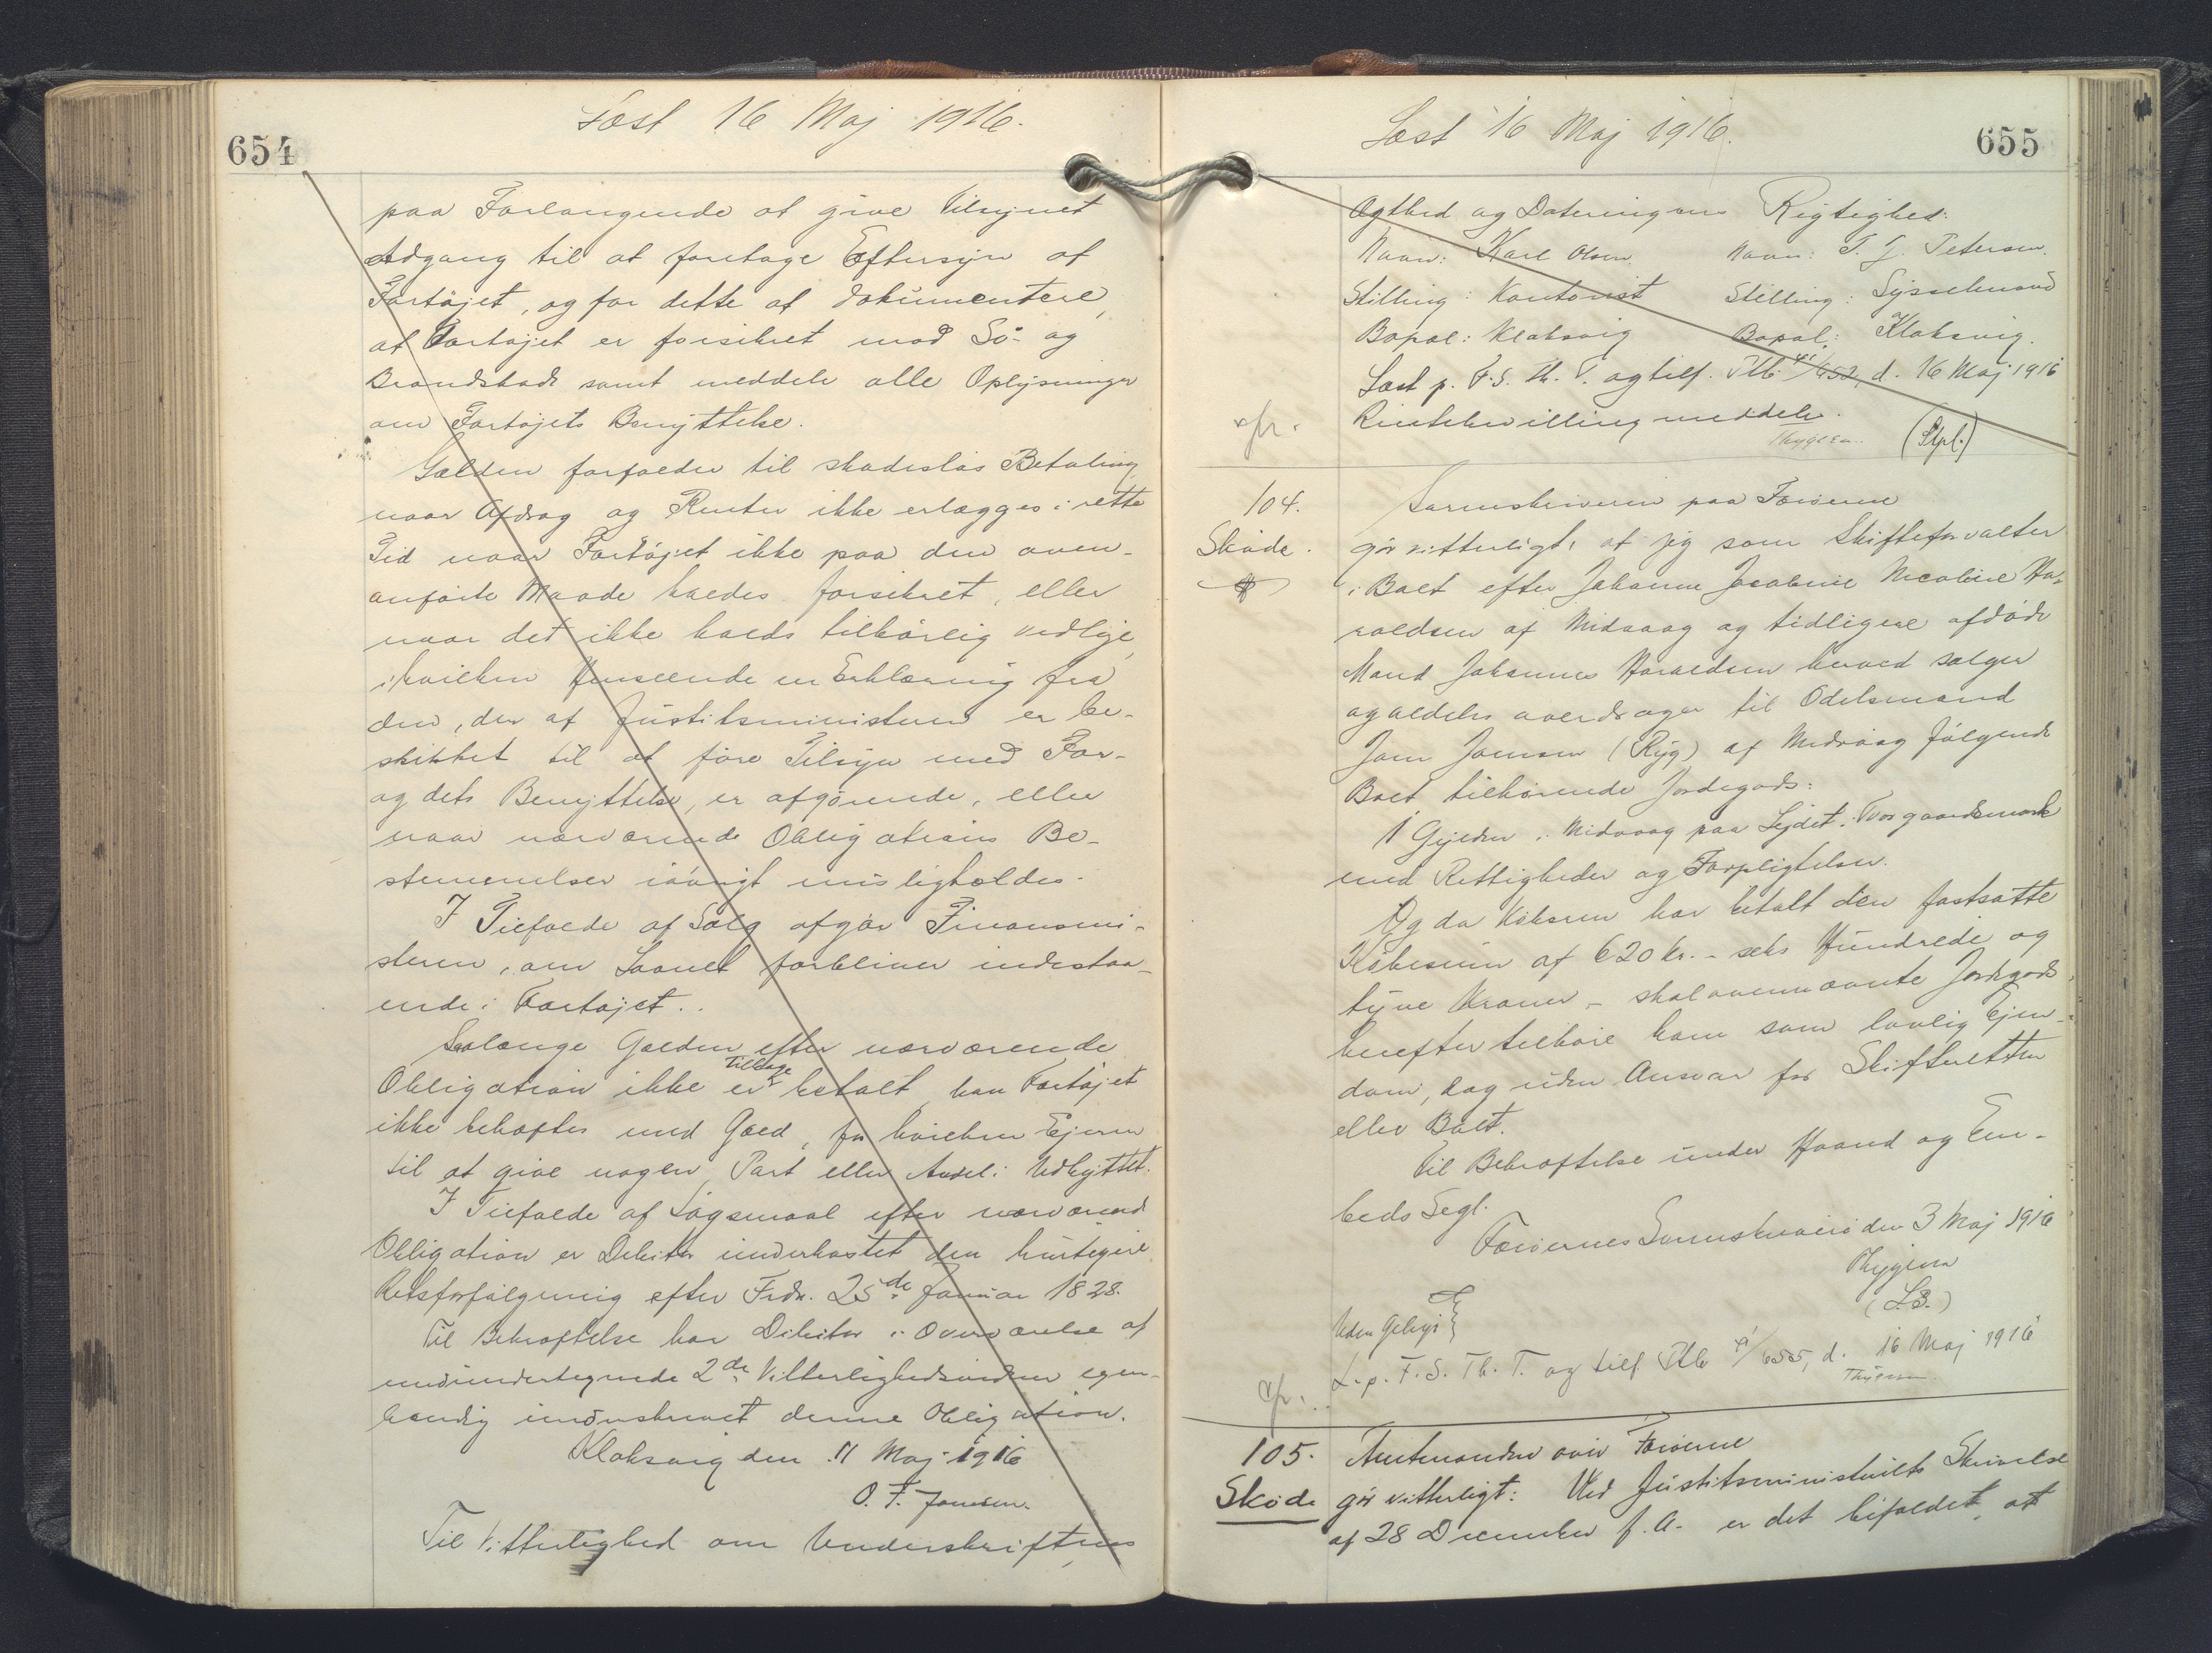 654
Læst 16 Maj 1916.
paa Forlangende at give Tilsynet
Adgang til at foretage Eftersyn af
Fartøjet, og for dette at dokumentere,
at Fartøjet er forsikret mod Sø- og
Brandskade samt meddele alle Oplysninger
om Fartøjets Benyttelse.
Gælden forfalder til skadesløs Betaling
naar Afdrag og Renter ikke erlægges i rette
Tid naar Fartøjet ikke paa den oven-
anførte Maade holdes forsikret, eller
naar det ikke holds tilbørlig vedlige,
i hvilken Henseende en Erklæring fra
den, der af Justitsministeren er be-
skikket til at føre Tilsyn med Far-
og dets Benyttelse, er afgørende, eller
naar nærværende Obligations Be-
stemmelser iøvrigt misligholdes.
I Tilfælde af Salg afgør Finansmi-
steren, om Laanet forbliver indestaa-
ende i Fartøjet.
Saalænge Gælden efter nærværende
Obligation ikke er tilbage betalt kan Fartøjet
ikke behæftes med Gæld, for hvilken Ejeren
til at give nogen Part eller Andel i Udbyttet.
I Tilfælde af Søgsmaal efter nærværend
Obligation er Debitor underkastet den hurtigere
Retsforfølgning efter Frdn. 25de Januar 1828.
Til Bekræftelse har Debitor i Overværelse af
medundertegnede 2de Vitterlighedsvidner egen-
hændig underskrevet denne Obligation.
Klaksvig den 11 Maj 1916
O. F. Joensen.
Til Vitterlighed om Underskriftens
655
Læst 16 Maj 1916.
Ægthed og Dateringens Rigtighed:
Navn: Karl Olsen. Navn: T. J. Petersen.
Stilling: Kontorist Stilling: Sysselmand
Bopæl: Klaksvig Bopæl: Klaksvig.
Læst p. F. S. Th. T. og tilf. Ptb. 652, d. 16 Maj 1916
cfr. Rentebevilling meddelt.
Thygesen. (Stpl.)
104. Sorenskriveren paa Færøerne
Skøde. gør vitterligt: at jeg som Skifteforvalter
i Boet efter Johanne Jacobine Nicoline Ha-
raldsen af Midvaag og tidligere afdøde
Mand Johannes Haraldsen herved sælger
og aldeles overdrager til Odelsmand
Joen Joensen (Ryg) af Midvaag følgende
Boet tilhørende Jordegods:
1 Gylden i Midvaag paa Lejdet i Tvorgaardsmark
med Rettigheder og Forpligtelser.
Og da Køberen har betalt den fastsatte
Købesum af 620 kr. - seks Hundrede og
tyve Kroner - skal ovennævnte Jordegods
herefter tilhøre ham som lovlig Ejen-
dom, dog uden Ansvar for Skifteretten
eller Boet.
Til Bekræftelse under Haand og Em-
beds Segl.
Færøernes Sorenskriveri den 3 Maj 1916
Thygesen
(L.S.)
Uden Gebyr
cfr. L. p. F. S. Th. T. og tilf. Ptb 655, d. 16 Maj 1916
Thygesen
105. Amtmanden over Færøerne
Skøde gør vitterligt: Ved Justitsministeriets Skrivelse
af 28 December f. A. er det bifaldet, at